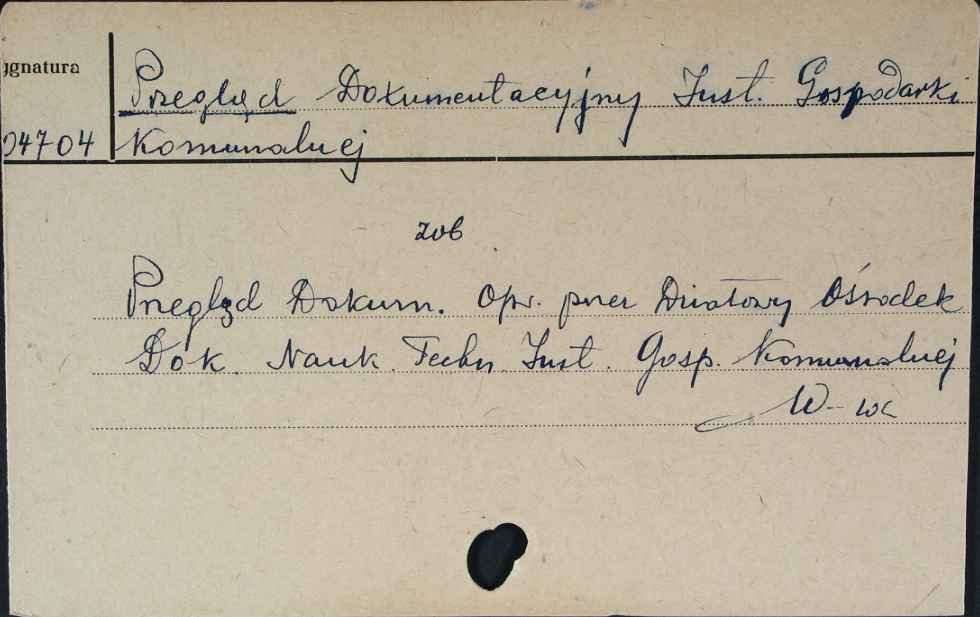 ygnatura
Przegląd Dokumentacyjny Inst. Gospodarki
04704 Komunalnej
zob
Przegląd Dokum. Opr. przez Działowy Ośrodek
Dok. Nauk. Techn. Inst. Gosp. Komunalnej
W-wa